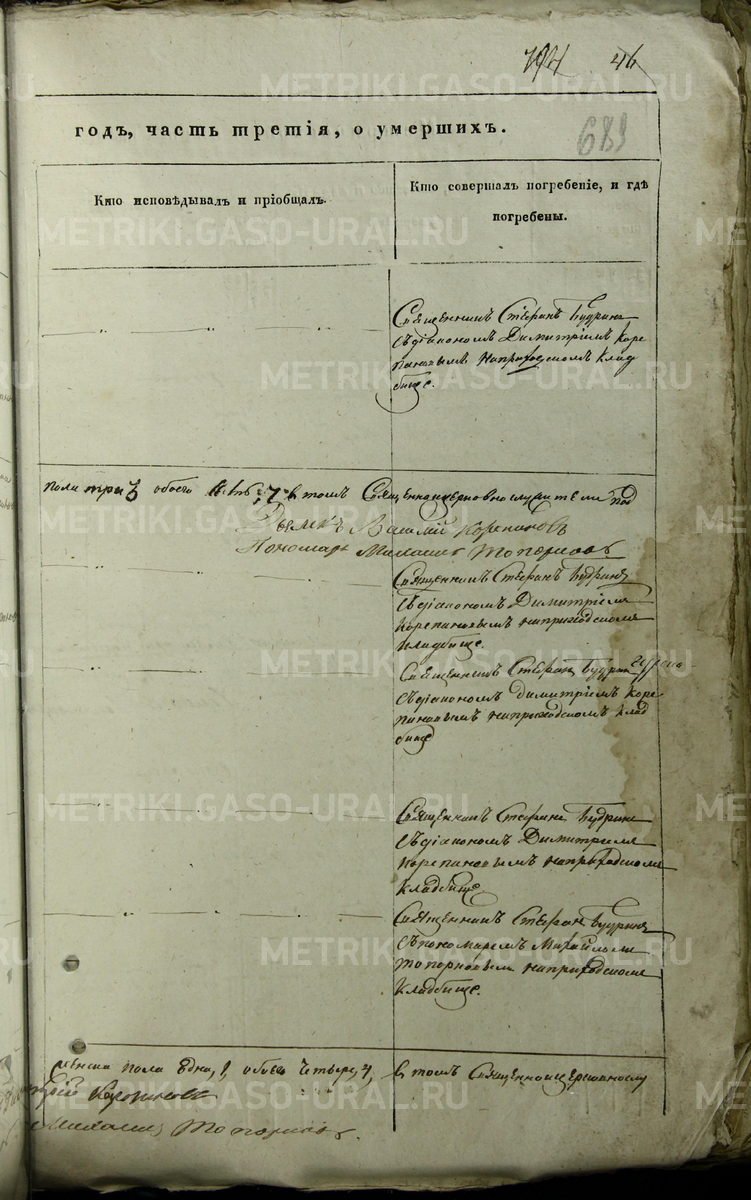 46
683
годъ, часть третія, о умершихъ.
Кто исповѣдывалъ и пріобщалъ.
Кто совершалъ погребеніе, и гдѣ
погребены.
Священникъ Стефанъ Будринъ
съ діакономъ Димитріемъ Коре
пановымъ на приходскомъ клад
бище.
пола три 3 обоего 7 въ томъ Священноцерковнослужители под
Василій
Пономарь Михаилъ Топорковъ
Священникъ Стефанъ Будринъ
съ діакономъ Димитріемъ
Корепановымъ на приходскомъ
кладбище.
Священникъ Стефанъ Будринъ
съ діакономъ Димитріемъ Коре
пановымъ на приходскомъ клад
бище
Священникъ Стефанъ Будринъ
съ діакономъ Димитріемъ
Корепановымъ на приходскомъ
кладбище
Священникъ Стефанъ Будринъ
съ пономаремъ Михайломъ
на приходскомъ
кладбище.
женска пола одна, 1, обоего четыре, 4, въ томъ
Михаилъ
METRIKI.GASO-URAL.RU